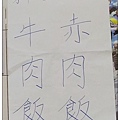 赤肉飯
牛肉飯